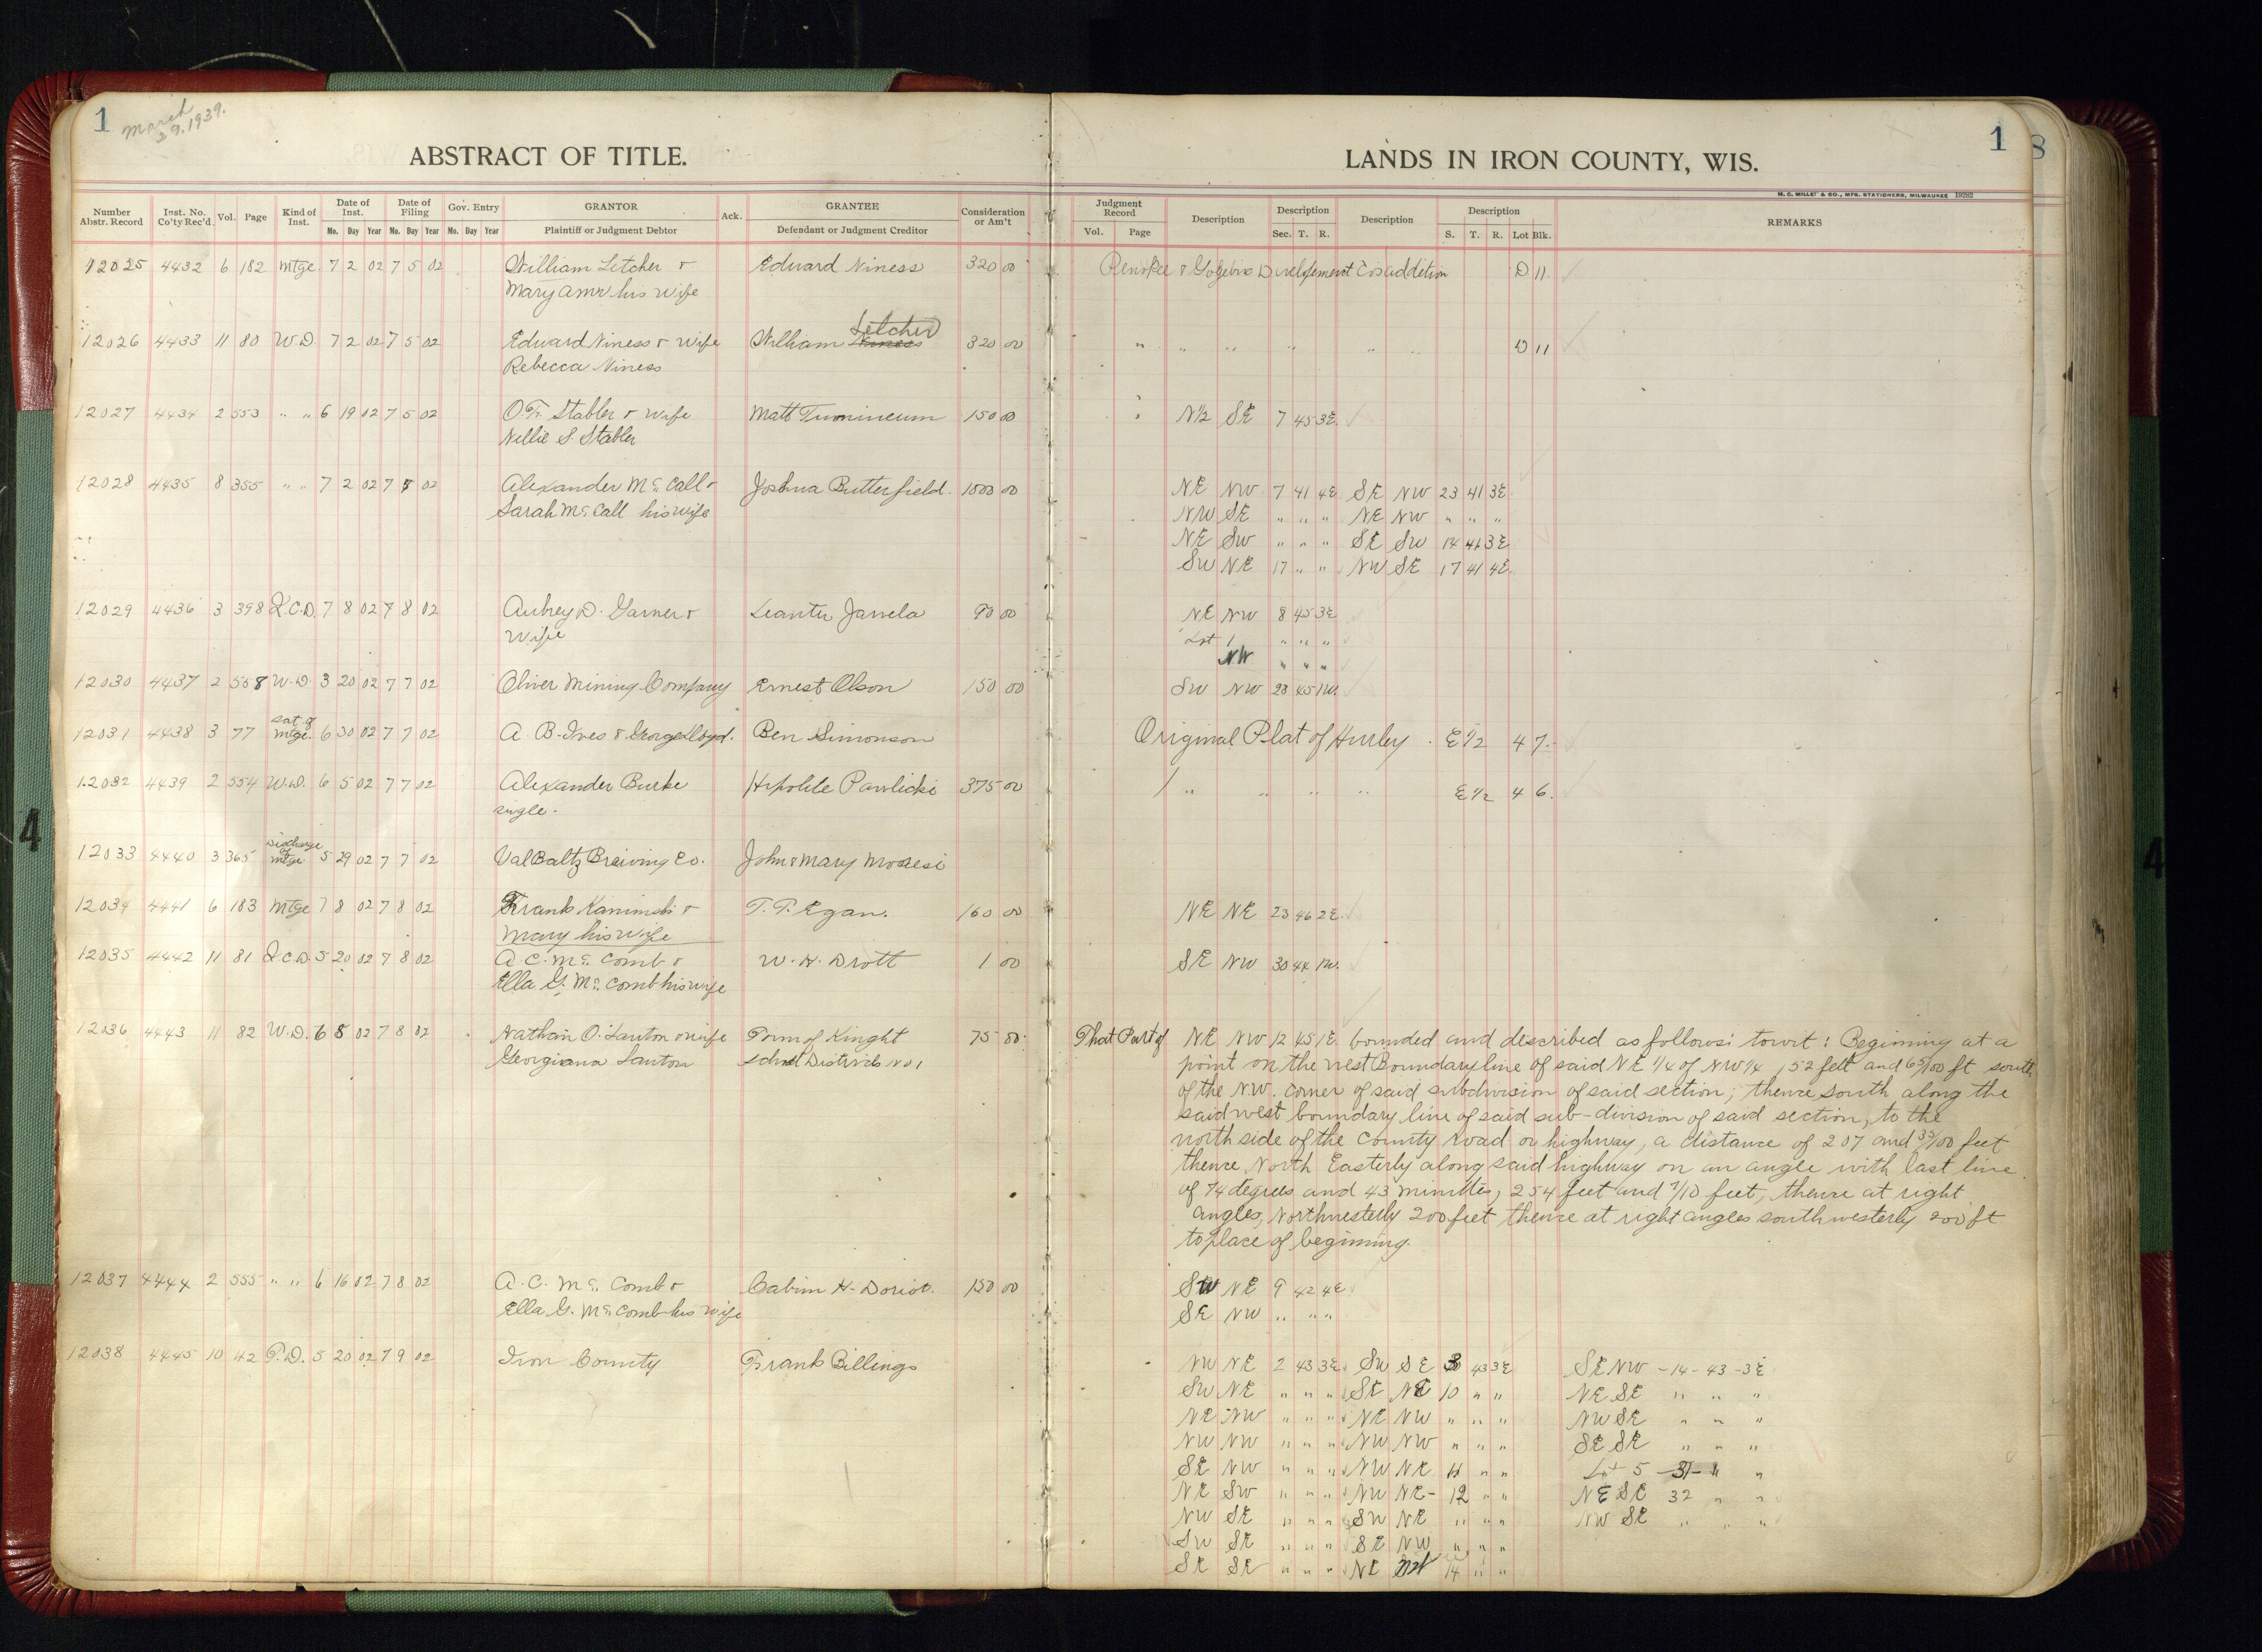 1
March
29, 1939.
ABSTRACT OF TITLE.
Number Abstr. Record | Inst. No. Co'ty Rec'd. | Vol. | Page | Kind of Inst. | Date of Inst. Mo. Day Year | Date of Filing Mo. Day Year | Gov. Entry Mo. Day Year | GRANTOR Plaintiff or Judgment Debtor | Ack. | GRANTEE Defendant or Judgment Creditor | Consideration or Am't
12025 4432 6 182 Mtge. 7 2 02 7 5 02 William Letcher & Edward Niness 320 00
Mary Ann his wife
Letcher
12026 4433 11 80 W.D. 7 2 02 7 5 02 Edward Niness & wife William Niness 320 00
Rebecca Niness
12027 4434 2 553 " " 6 19 02 7 5 02 O.F. Stabler & wife Matt 150 00
Nellie S. Stabler
12028 4435 8 355 " " 7 2 02 7 5 02 Alexander Mc Call & Joshua Butterfield. 1500 00
Sarah Mc Call his wife
12029 4436 3 398 Q.C.D. 7 8 02 7 8 02 Aubrey D. Garner & Jarvela 90 00
wife
12030 4437 2 558 W.D. 3 20 02 7 7 02 Oliver Mining Company Ernest Olson 150 00
Sat of
12031 4438 3 77 mtge. 6 30 02 7 7 02 A. B. Ives & George Loyd. Ben Simonson
12032 4439 2 554 W.D. 6 5 02 7 7 02 Alexander Burke Hipolite Pawlicki 375 00
single.
Discharge
of
12033 4440 3 365 mtge 5 29 02 7 7 02 Val Baltz Breiving Co. John & Mary
12034 4441 6 183 Mtge 7 8 02 7 8 02 Frank Kaminski & T. P. Egan. 160 00
Mary his wife
12035 4442 11 81 Q.C.D. 5 20 02 7 8 02 A. C. Mc Comb & W. H. Drott 1 00
Ella G. Mc Comb his wife
12036 4443 11 82 W.D. 6 8 02 7 8 02 Nathan O. Lauton & wife Town of Kinght 75 00
Georgiana Lauton School District No 1
12037 4444 2 555 " " 6 16 02 7 8 02 A. C. Mc Comb & Calvin H. Doriot. 150 00
Ella G. Mc Comb his wife
12038 4445 10 42 T.D. 5 20 02 7 9 02 Iron County Frank Billings
4
1
8
LANDS IN IRON COUNTY, WIS.
H. C. MILLER & CO., MFG. STATIONERS, MILWAUKEE
Judgment Record Vol. Page | Description | Description Sec. T. R. | Description | Description S. T. R. Lot Blk. | REMARKS
Penokee & Gogebic Development Cos addition D 11
" " " " " " D 11
" N½ SE 7 45 3E.
NE NW 7 41 4E SE NW 23 41 3E
NW SE " " " NE NW " " "
NE SW " " " SE SW 14 41 3E
SW NE 17 " " NW SE 17 41 4E
NE NW 8 45 3E
Lot 1 " " "
NW " " "
SW NW 28 45 1W.
Original Plat of Hurley. E½ 4 7.
" " " " E½ 4 6.
NE NE 23 46 2E.
SE NW 30 44 1W.
That Part of NE NW 12 45 1E. bounded and described as follows: towit: Beginning at a
point on the west Boundary line of said NE ¼ of NW¼, 52 feet and 65/100 ft south
of the N.W. corner of said subdivision of said section; thence south along the
said west boundary line of said sub-division of said section, to the
north side of the County Road or highway, a distance of 207 and 35/100 feet
thence North Easterly along said highway on an angle with last line
of 74 degrees and 43 minuttes, 254 feet and 7/10 feet, thence at right
angles, Northwesterly 200 feet thence at right angles southwesterly 200 ft
to place of beginning.
SW NE 9 42 4E
SE NW " " "
NW NE 2 43 3E SW SE 3 43 3E SE NW - 14 - 43 - 3E
SW NE " " " SE NE 10 " " NE SE " " "
NE NW " " " NE NW " " " NW SE " " "
NW NW " " " NW NW " " " SE SE " " "
SE NW " " " NW NE 11 " " Lot 5 - 31 - " "
NE SW " " " NW NE - 12 " " NE SE 32 " "
NW SE " " " SW NE " " " NW SE " " "
SW SE " " " SE NW " " "
SE SE " " " NE 14 " "
4